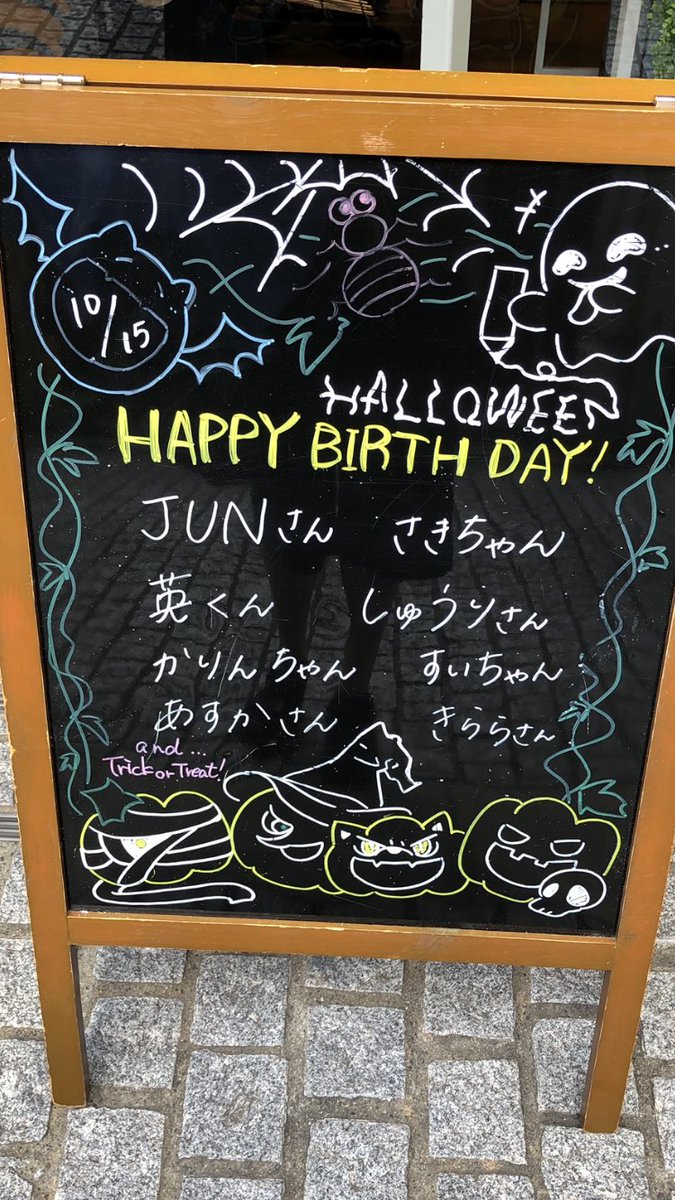 10/15
HALLOWEEN
HAPPY BIRTH DAY!
JUNさん さきちゃん
英くん しゅうりさん
かりんちゃん すいちゃん
あすかさん きららさん
and...
Trick or Treat!